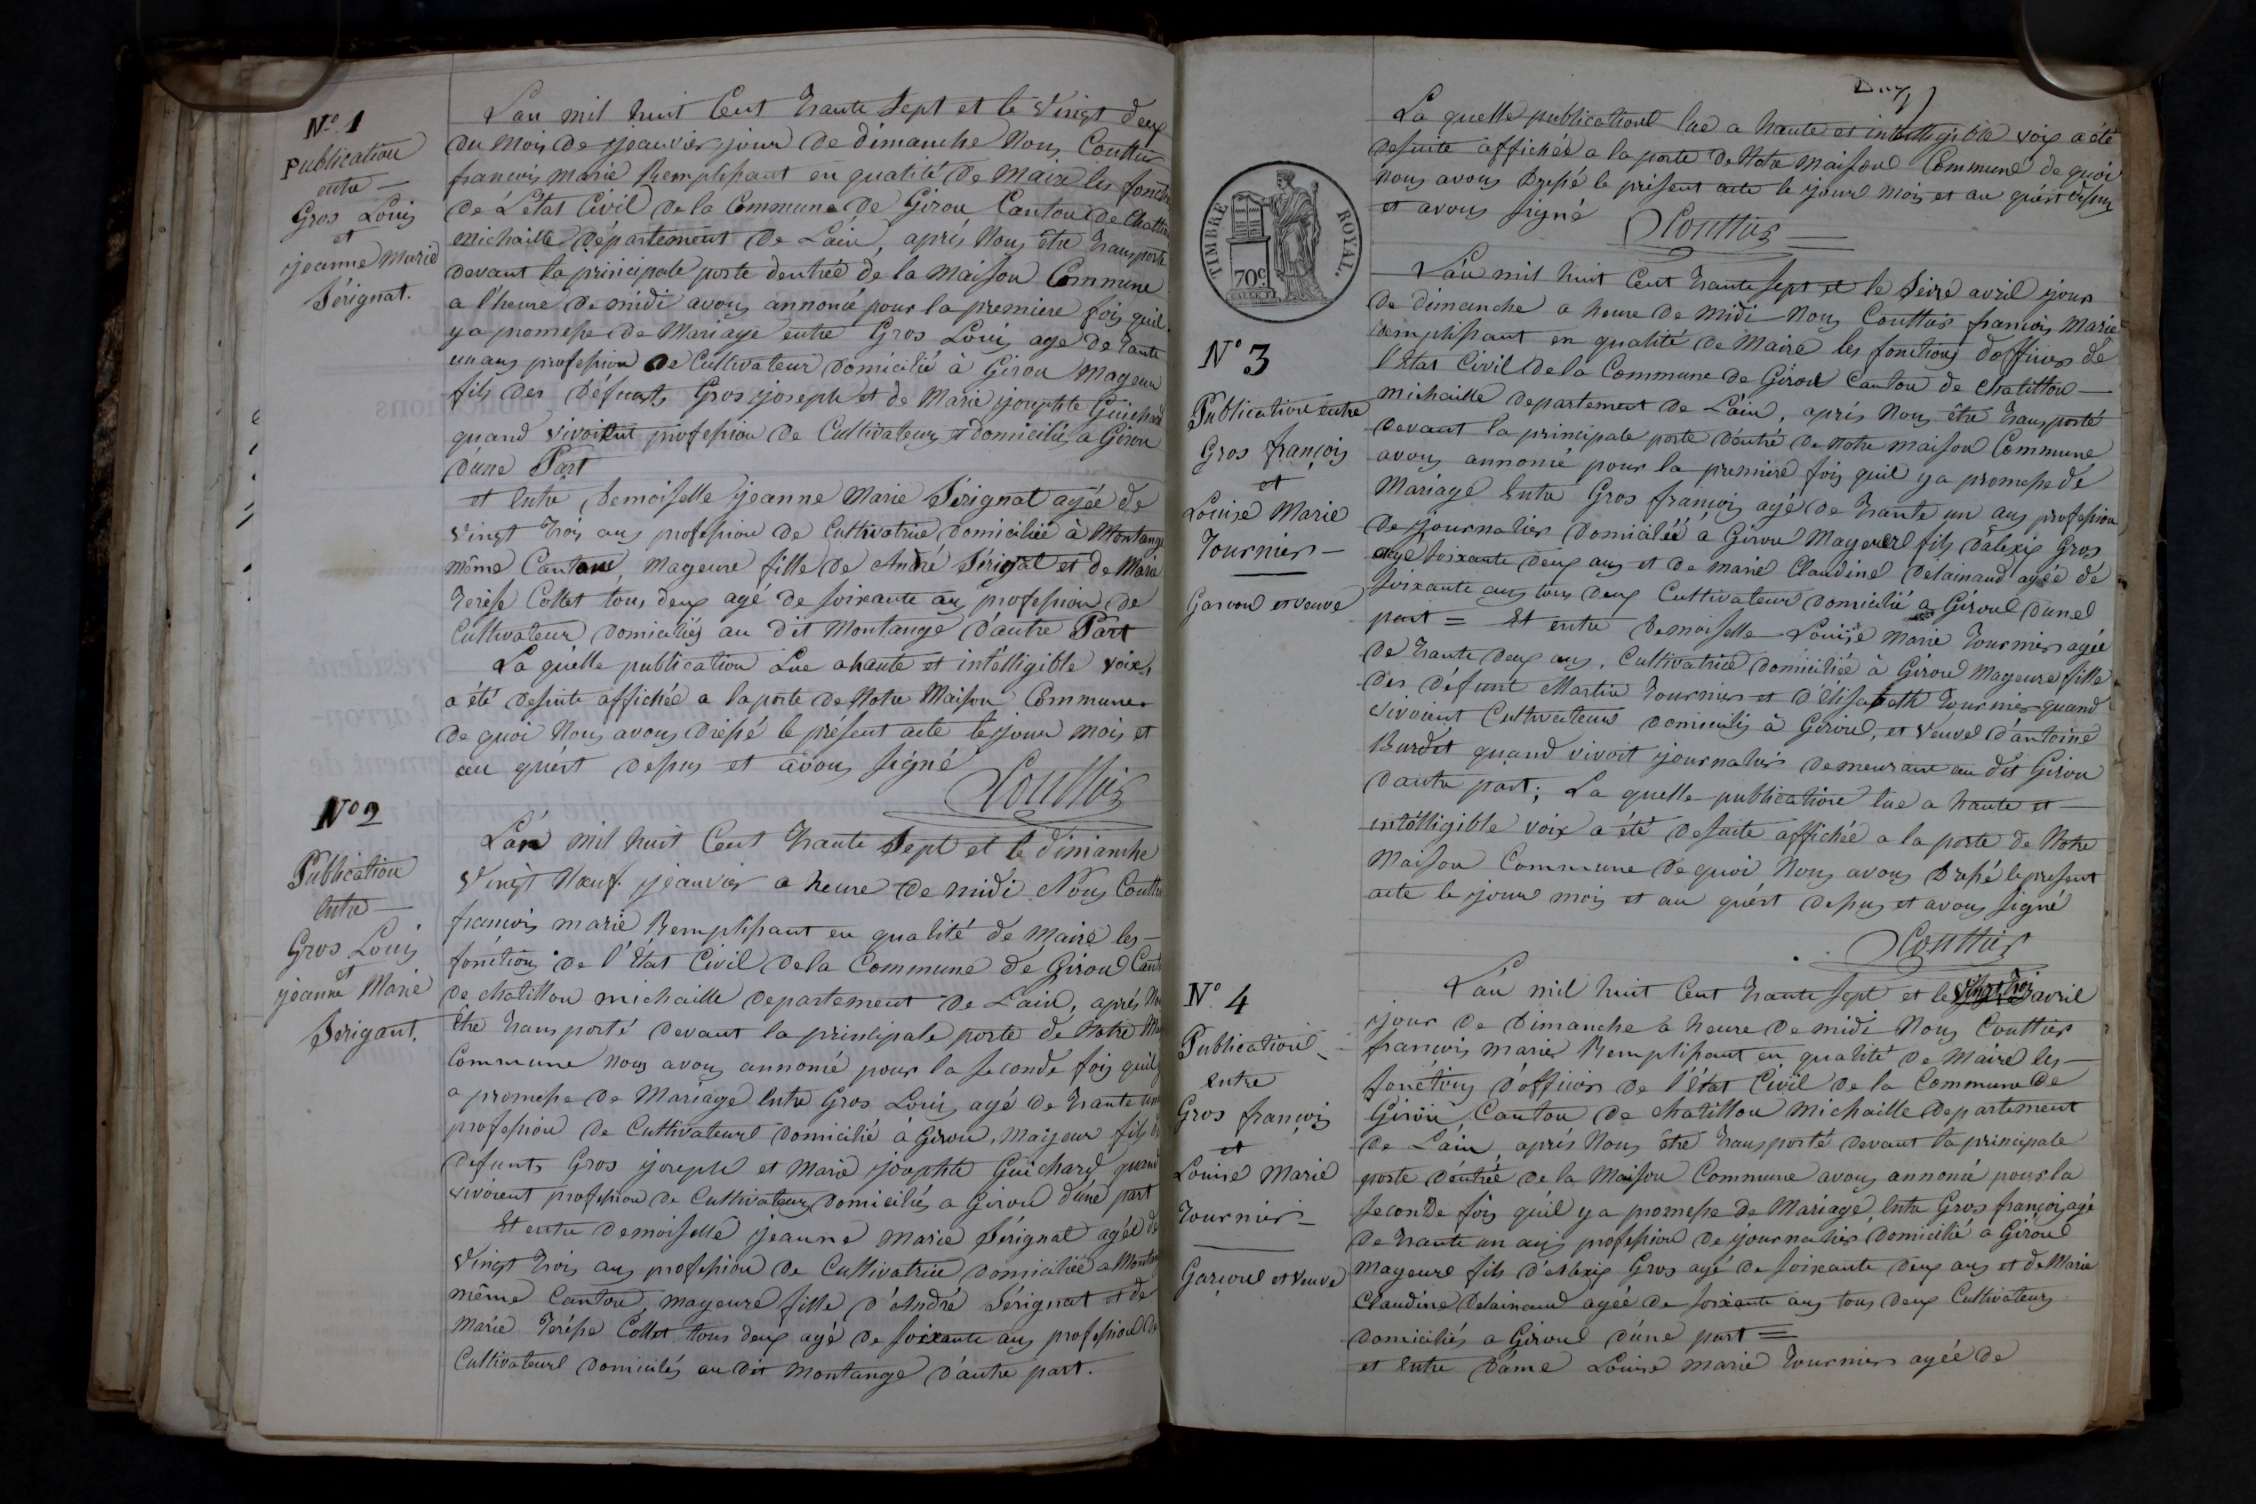 N° 1
Publication
entre
Gros Louis
et
jeanne Marie
Sérignat.
L'an mil huit Cent trante Sept et le Vingt deux
du Mois de jeanvier jour de dimanche Nous Couttier
francois marie Remplissant en qualité de Maire les fonctio
de L'état Civil de la Commune de Giron Canton de Chatill
michaille département de Lain, aprés Nous être transporté
devant la principale porte dentrée de la Maison Commune
a l'heure de midi avons annoncé pour la premiere fois quil
y a promesse de Mariage entre Gros Louis agé de trante
un ans profession de Cultivateur domicilié à Giron Mageur
fils des Défunts Gros joseph et de Marie josephte Guichard
quand vivoient profession de Cultivateurs et domiciliés a Giron
d'une Part
et Entre Demoiselle jeanne Marie Sérignat agée de
vingt trois ans profession de Cultivatrice domiciliée à Montange
même Canton, Mageure fille de André Sérignat et de Marie
Terèse Collet tous deux agé de soixante ans profession de
Cultivateur domiciliés au dit Montange d'autre Part
La quelle publication Lue a haute et intélligible voix
a été desuite affichée a la porte de Notre Maison Commune
de quoi Nous avons dressé le présent acte le jour mois et
an quért dessus et avons signé
Couttier
N° 2
Publication
Entre
Gros Louis
et
jeanne Marie
Serigant.
L'an mil huit Cent trante Sept et le dimanche
Vingt Nœuf jeanvier a heure de midi Nous Coutti
francois marie Remplissant en qualité de Maire les
fonctions de l'État Civil de la Commune de Giron Cant
de chatillon michaille departement de Lain, aprés No
être transporté devant la principale porte de Notre Mai
Commune Nous avons annoncé pour la seconde fois quil y
a promesse de Mariage Entre Gros Louis agé de trante un
profession de Cultivateur domicilié à Giron, Majeur fils de
defunts Gros joseph et Marie josephte Guichard quand
vivoient profession de Cultivateurs domiciliés a Giron d'une part
Et entre demoiselle jeanne Marie Sérignat agée de
Vingt trois ans profession de Cultivatrice domiciliée a Montan
même Canton, mageure fille d'André Sérignat et de
Marie Terèse Collet tous deux agé de soixante ans profession de
Cultivateur domiciliés au dit Montange d'autre part.
La quelle publication lue a haute et intelligible voix a été
desuite affichée a la porte de Notre Maison Commune de quoi
nous avons Dressé le présent acte le jour mois et an quért dessus
et avons signé
Couttier
TIMBRE ROYAL.
70c.
N° 3
Publication entre
Gros françois
et
Louise Marie
Tournier
Garcon et veuve
L'an mil huit Cent trante sept et le seize avril jour
de dimanche a heure de midi Nous Couttier francois Marie
remplissant en qualité de Maire les fonctions d'officier de
l'Etat Civil de la Commune de Giron Canton de chatillon
michaille departement de Lain, aprés Nous être transporté
devant la principale porte d'éntré de Notre maison Commune
avons annoncé pour la premiere fois quil y a promesse de
Mariage Entre Gros françois agé de trante un ans profession
de journalier domicilié à Giron Mageure fils d'alexis Gros
agé soixante deux ans et de marie Claudine Delainaud agée de
soixante ans tous deux Cultivateur domicilié a Giron dune
part = Et entre Demoiselle Louise Marie Tournier agée
de trante deux ans, Cultivatrice domiciliée à Giron Mageure fille
des défunt Martin Tournier et d'Elisabeth Tournier quand
vivoient Cultivateurs domiciliés à Giron, et Veuve d'antoine
Burdet quand vivoit journalier demeurant au dit Giron
d'autre part; La quelle publication lue a haute et
intélligible voix a été desuite affichée a la porte de Notre
Maison Commune de quoi Nous avons Dressé le present
acte le jour mois et an quért dessus et avons signé
Couttier
N° 4
Publication
Entre
Gros françois
et
Louise Marie
Tournier
Garcon et veuve
L'an mil huit Cent trante sept et le vingt trois avril
jour de Dimanche a heure de midi Nous Couttier
francois marie Remplissant en qualité de Maire les
fonctions d'officier de l'état Civil de la Commune de
Giron Canton de chatillon Michaille departement
de Lain, aprés Nous être transporté devant la principale
porte d'éntrée de la Maison Commune avons annoncé pour la
seconde fois quil y a promesse de Mariage Entre Gros françois agé
de trante un ans profession de journalier domicilié à Giron
Mageure fils d'Alexis Gros agé de soixante deux ans et de Marie
Claudine Delainaud agée de soixante ans tous deux Cultivateurs
domiciliés a Giron d'une part =
et Entre Dame Louise Marie Tournier agée de